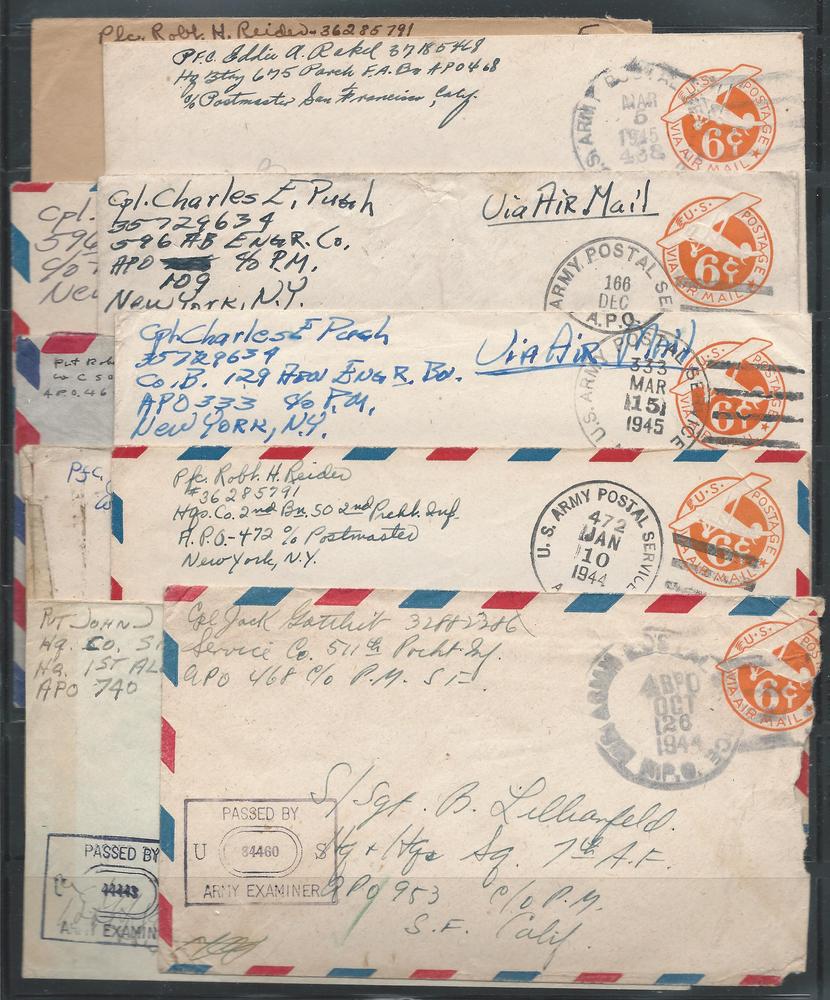 Pfc. Robt. H. Reider - 36285791
Pfc. Eddie A. Rakel 37185468
Hq Btry 675 Parch F.A. Bn APO 468
c/o Postmaster San Francisco, Calif.
U.S. ARMY POSTAL
MAR
5
1945
468
U.S. POSTAGE
6¢
VIA AIR MAIL
Cpl.
596
c/o
New
Cpl. Charles E. Pugh
35729634
596 AB ENGR. Co.
APO c/o P.M.
109
New York, N.Y.
Via Air Mail
ARMY POSTAL SE
166
DEC
A.P.O.
U.S. POSTAGE
6¢
VIA AIR MAIL
Pvt Rob
Co C 50
A.P.O. 46
Cpl. Charles E Pugh
35729634
Co. B. 129 ABN ENGR. Bn.
APO 333 c/o P.M.
New York, N.Y.
Via Air Mail
U.S. ARMY POSTAL SE CE
333
MAR
15
1945
U.S. POSTAGE
6¢
Pfc.
Pfc. Robt. H. Reider
#36285791
Hqs. Co. 2nd Bn. 502nd Prcht. Inf.
A.P.O.-472 % Postmaster
New York, N.Y.
U.S. ARMY POSTAL SERVICE
472
JAN
10
1944
U.S. POSTAGE
6¢
VIA AIR MAIL
Pvt JOHN J
Hq. Co. S
Hq. 1ST AL
APO 740
PASSED BY
44443
ARMY EXAMIN
Cpl Jack Gottlieb 32882386
Service Co. 511th Prcht Inf.
APO 468 c/o P.M. S.F.
ARMY POSTAL
APO
OCT
26
1944
U.S. POS
6¢
VIA AIR MAIL
S/Sgt. B. Lilkanfeld.
Hq + Hqs Sq. 7th A.F.
APO 953 c/o P.M.
S.F. Calif.
PASSED BY
U 84460 S
ARMY EXAMINER